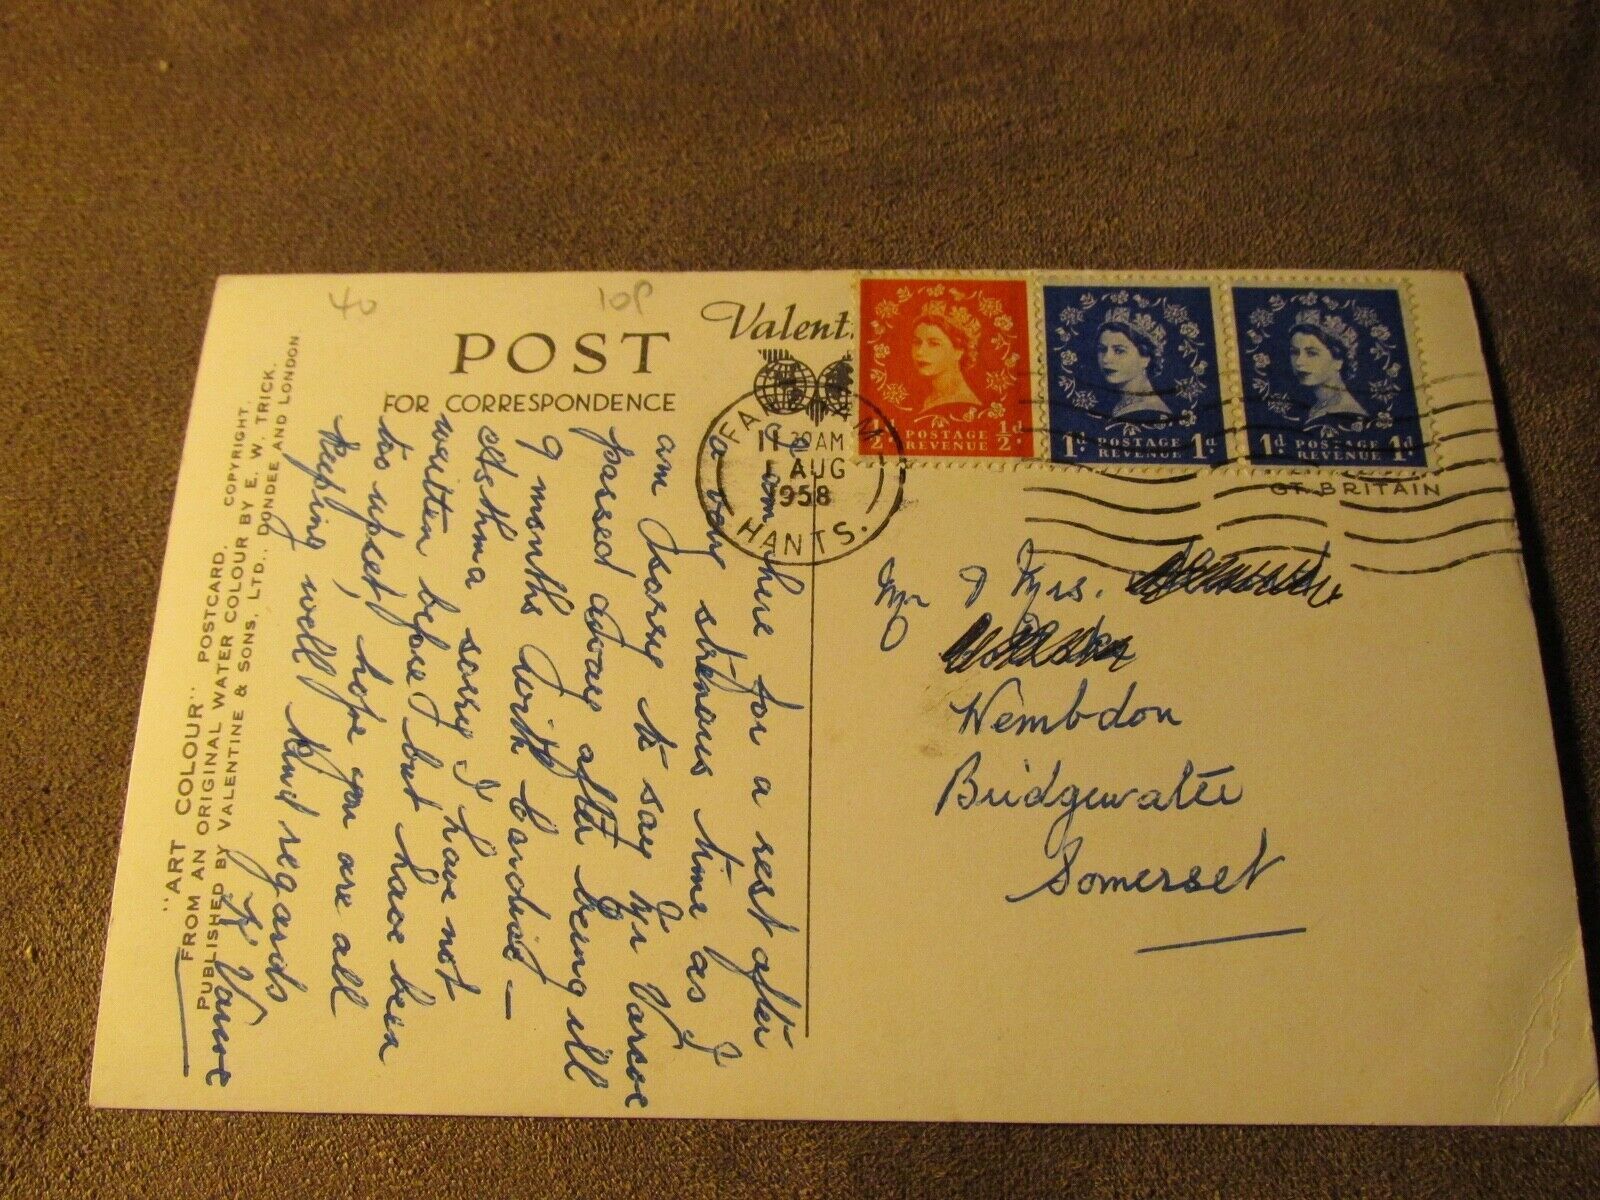 40
10p
POST
Valent
FOR CORRESPONDENCE
"ART COLOUR" POSTCARD. COPYRIGHT.
FROM AN ORIGINAL WATER COLOUR BY E. W. TRICK.
PUBLISHED BY VALENTINE & SONS, LTD., DUNDEE AND LONDON
I am here for a rest after
a very strenuous time as I
am sorry to say Mr Varcoe
passed away after being ill
9 months with Cardiac
Asthma sorry I have not
written before but have been
too upset, hope you are all
keeping well kind regards
Varcoe
FAREHAM
11 30AM
1 AUG
1958
HANTS.
½d. POSTAGE REVENUE ½d.
1d. POSTAGE REVENUE 1d.
1d. POSTAGE REVENUE 1d.
GT. BRITAIN
Mr & Mrs.
Wembdon
Bridgewater
Somerset